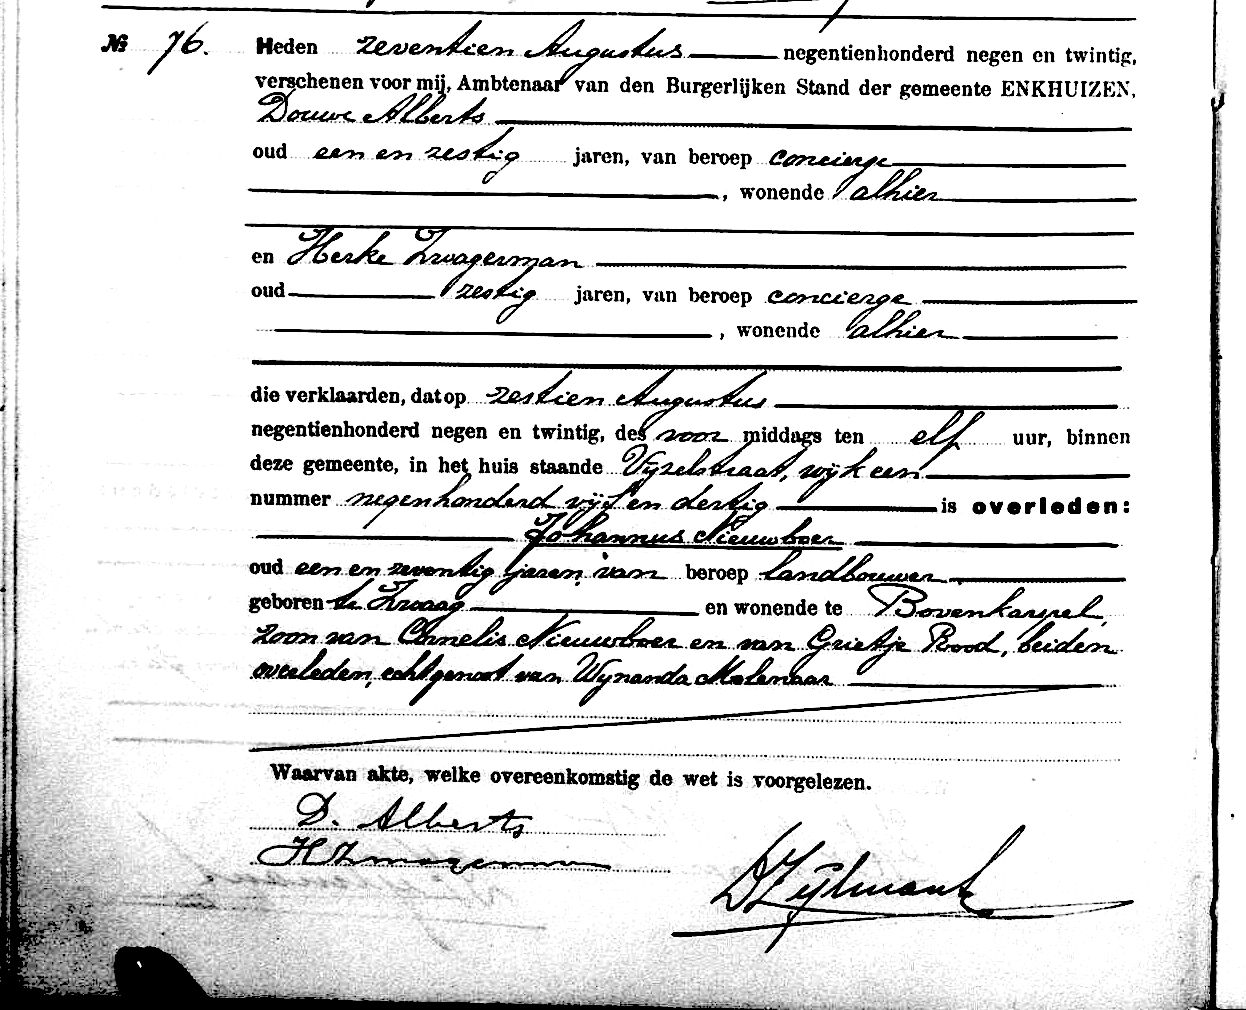 № 76. Heden zeventien Augustus negentienhonderd negen en twintig,
verschenen voor mij, Ambtenaar van den Burgerlijken Stand der gemeente ENKHUIZEN,
Douwe Alberts
oud een en zestig jaren, van beroep concierge
, wonende alhier
en Herke Zwagerman
oud zestig jaren, van beroep concierge
, wonende alhier
die verklaarden, dat op zestien Augustus
negentienhonderd negen en twintig, des voor middags ten elf uur, binnen
deze gemeente, in het huis staande Vijzelstraat, wijk een
nummer negenhonderd vijf en dertig is overleden:
Johannus Nieuwboer
oud een en zeventig jaren, van beroep landbouwer
geboren te Zwaag en wonende te Bovenkarspel,
zoon van Cornelis Nieuwboer en van Grietje Rood, beiden
overleden, echtgenoot van Wijnanda Molenaar
Waarvan akte, welke overeenkomstig de wet is voorgelezen.
D. Alberts
H Zwagerman